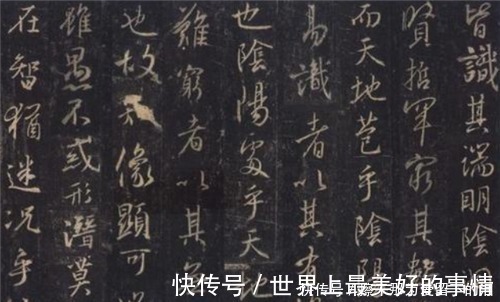 皆識其端明陰
賢哲罕窮其數
而天地苞乎陰陽
易識者以其有
也陰陽處乎天地
難窮者以其無
也故像顯可
雖愚不惑形潛莫
在智猶迷況乎
快传号/世界上最美好的事情